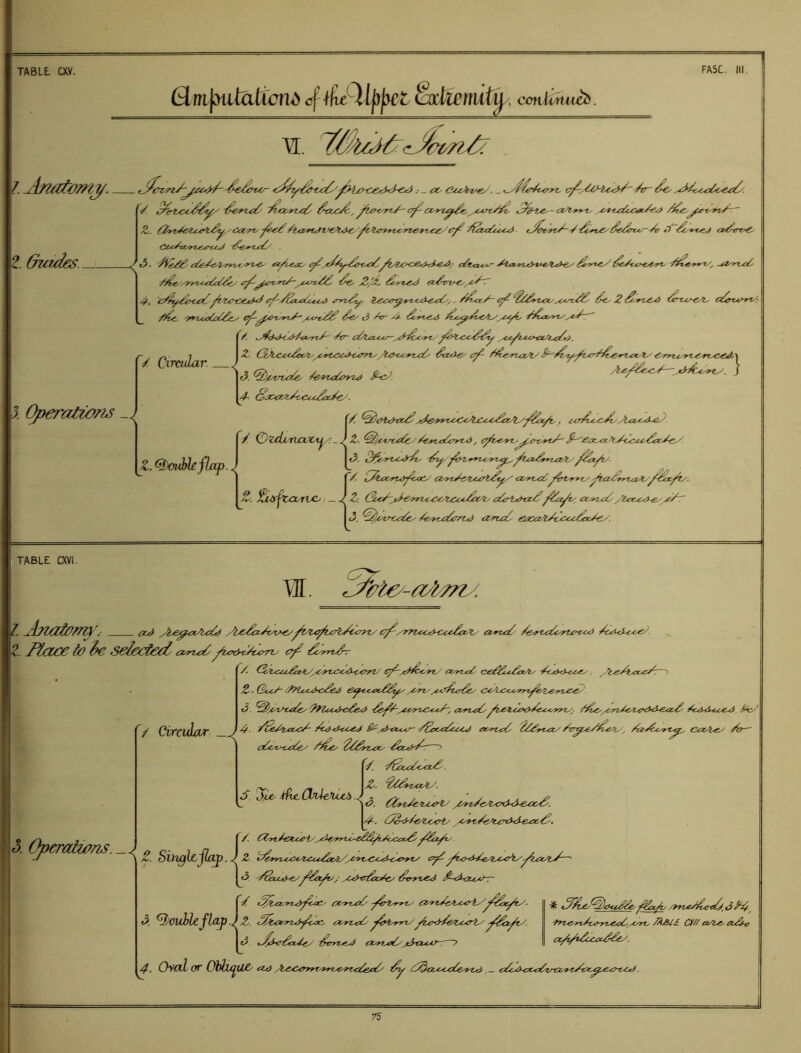 TABLE CXV.
FASC. III.
Amputations of the Upper Extremity, continued.
VI. Wrist Joint.
1. Anatomy. Joint just below Styloid processes; a Curve. Motion of Wrist to be studied.
2. Guides.
1. Tritically bend hand back, front of angle will
2. Anteriorly can feel transverse prominence of Radius. Joint 1 line below to 3 lines above
cutaneous bend.
3. Well determine apex of Styloid processes; draw transverse line between them, and
the middle of joint will be 2½ lines above it
4. Styloid process of Radius only recognised, that of Ulna will be 2 lines lower down
the middle of joint will be 3 to 4 lines higher up than it
3. Operations
1. Circular.
1. Assistant to draw Skin forcibly upwards.
2. Circular incision round base of thenar & hypothenar eminences
reflect skin.
3. Divide tendons &c.
4. Exarticulate.
2. Double flap.
1. Ordinary.
1. Dorsal semicircular flap, which raise.
2. Divide tendons, open joint & exarticulate.
3. Finish by forming palmar flap.
2. Lisfranc.
1. Transfix anteriorly and form palmar flap.
2. Cut semicircular dorsal flap and raise it
3. Divide tendons and exarticulate.
TABLE CXVI.
VII. Fore-arm.
1. Anatomy. as regards relative proportion of muscular and tendinous tissue.
2. Place to be selected and position of limb
3. Operations.
1. Circular
1. Circular incision of skin and cellular tissue, retract
2. Cut Muscles equally in whole circumference.
3. Divide Muscles left uncut, and periosteum, the interosseal tissues, &c
4. Retract tissues & saw Radius and Ulna together, taking care to
divide the Ulna last
5. Tie the Arteries.
1. Radial.
2. Ulnar.
3. Anterior interosseal.
4. Posterior interosseal.
2. Single flap.
1. Anterior semi-elliptical flap.
2. Semicircular incision of posterior part
3. Raise flap; isolate bones & saw
3. Double flap.
1. Transfix and form anterior flap.
2. Transfix and form posterior flap.
3. Isolate bones and saw
* The Double flap methods, 3 & 4,
mentioned in TABLE CVII are also
applicable.
4. Oval or Oblique as recommended by Baudens. disadvantageous.
75